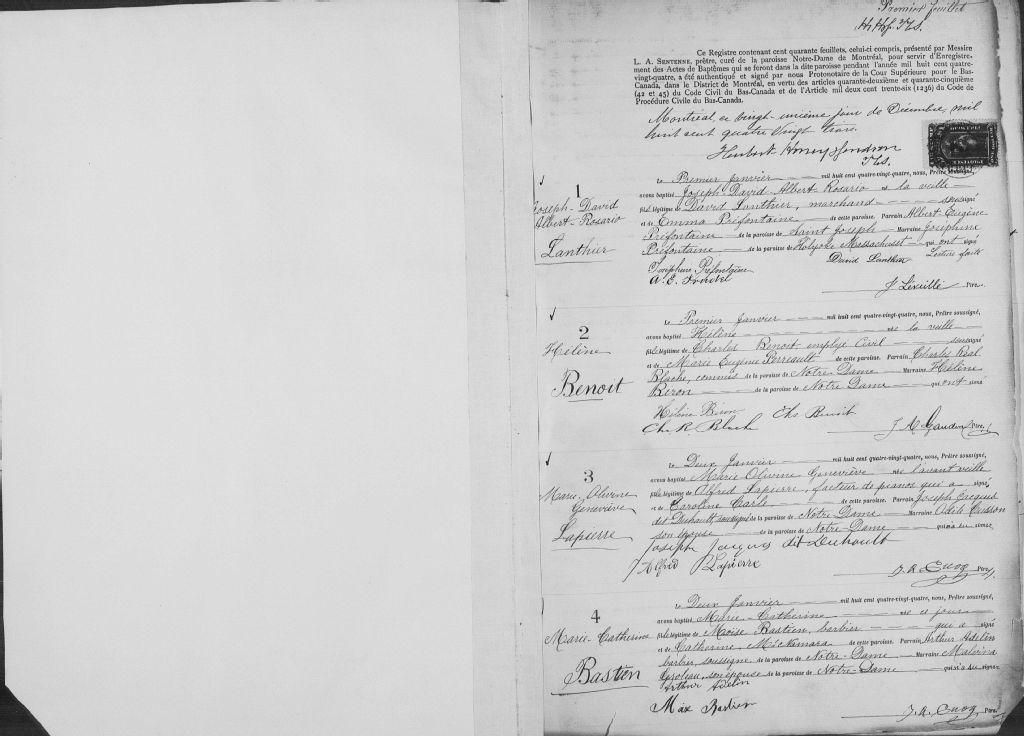 Premier feuillet
Ce Registre contenant cent quarante feuillets, celui-ci compris, présenté par Messire
L. A. SENTENNE, prêtre, curé de la paroisse Notre-Dame de Montréal, pour servir d'Enregistre-
ment des Actes de Baptêmes qui se feront dans la dite paroisse pendant l'année mil huit cent quatre-
vingt-quatre, a été authentiqué et signé par nous Protonotaire de la Cour Supérieure pour le Bas-
Canada, dans le District de Montréal, en vertu des articles quarante-deuxième et quarante-cinquième
(42 et 45) du Code Civil du Bas-Canada et de l'Article mil deux cent trente-six (1236) du Code de
Procédure Civile du Bas-Canada.
Montréal, ce vingt-unième jour de Décembre mil
huit cent quatre vingt trois.
Hubert Honey & Gendron
1
Joseph-David
Albert-Rosario
Lanthier
Le Premier Janvier mil huit cent quatre-vingt-quatre, nous, Prêtre soussigné,
avons baptisé Joseph-David-Albert-Rosario né la veille
fils légitime de David Lanthier, marchand soussigné
et de Emma Préfontaine de cette paroisse. Parrain Albert Eugène
Préfontaine de la paroisse de Saint Joseph Marraine Joséphine
Préfontaine de la paroisse de Holyoke Massachusset qui ont signé
David Lanthier Lecture faite
Joséphine Préfontaine
A. E.
J Léveillé Ptre.
2
Hélène
Benoit
Le Premier Janvier mil huit cent quatre-vingt-quatre, nous, Prêtre soussigné,
avons baptisé Hélène née la veille
fille légitime de Charles Benoit employé Civil soussigné
et de Marie Eugénie Perreault de cette paroisse. Parrain Charles Réal
Blache, commis de la paroisse de Notre Dame Marraine Hélène
Biron de la paroisse de Notre Dame qui ont signé
Hélène Biron Chs Benoit
Chs R. Blache
J A Gaudin Ptre.
3
Marie-Olivine
Geneviève
Lapierre
Le Deux Janvier mil huit cent quatre-vingt-quatre, nous, Prêtre soussigné,
avons baptisé Marie Olivine Geneviève née l'avant veille
fille légitime de Alfred Lapierre, facteur de pianos qui a signé
et de Caroline Carle de cette paroisse. Parrain Joseph Jacques
dit Duhault, soussigné de la paroisse de Notre Dame Marraine Adèle Cusson
son épouse de la paroisse de Notre Dame qui n'a su signer
Joseph Jacques dit Duhault
Alfred Lapierre
J. A. Cuoq Ptre.
4
Marie-Catherine
Bastien
Le Deux Janvier mil huit cent quatre-vingt-quatre, nous, Prêtre soussigné,
avons baptisé Marie-Catherine née ce jour
fille légitime de Moïse Bastien, barbier qui a signé
et de Catherine McNamara de cette paroisse. Parrain Arthur Adelin
barbier, soussigné de la paroisse de Notre-Dame Marraine Malvina
Groleau, son épouse de la paroisse de Notre Dame qui n'a su signer
Arthur Adelin
Max Bastien
J. A. Cuoq Ptre.